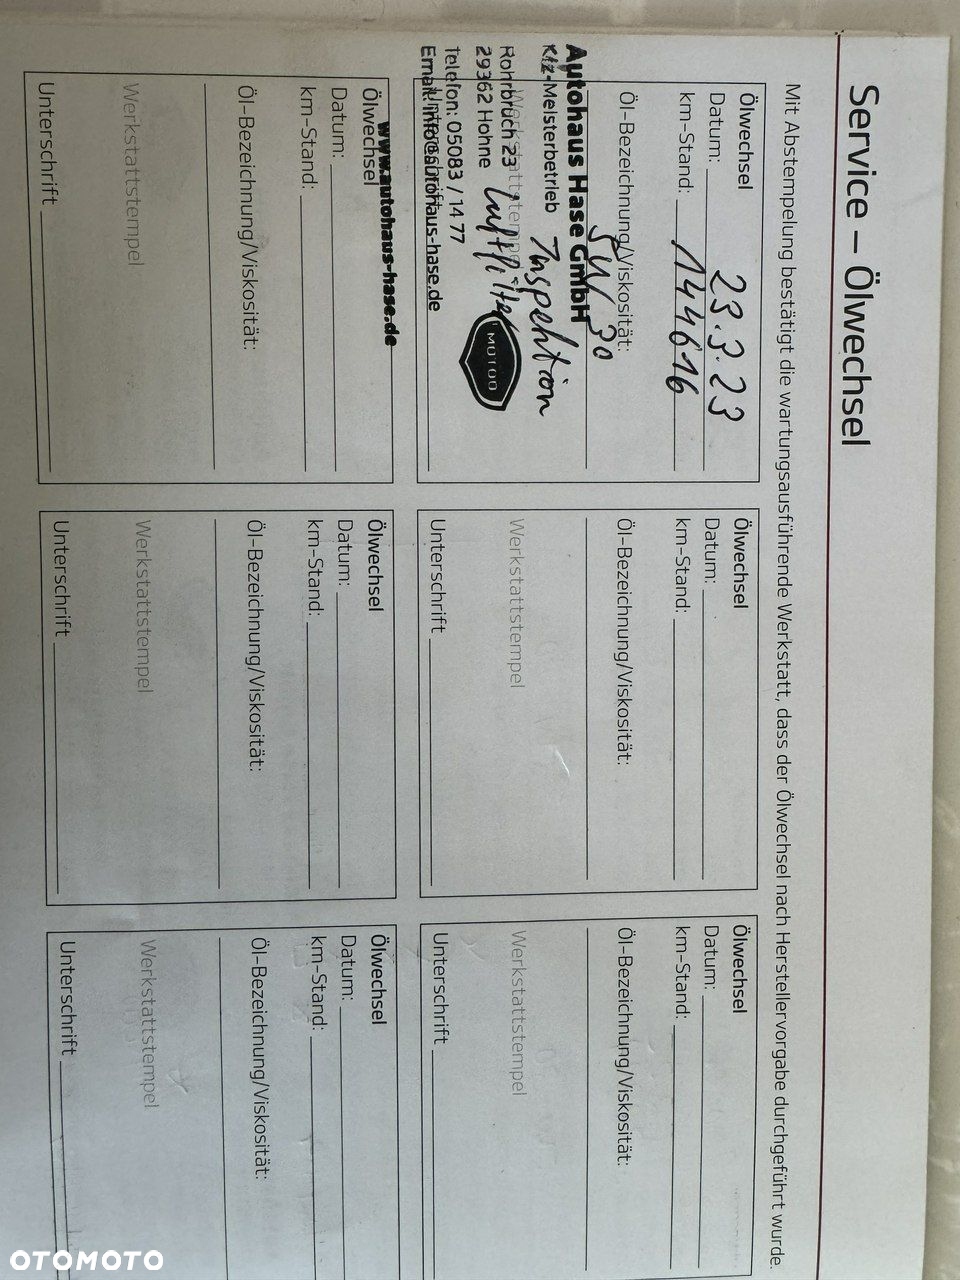 Service – Ölwechsel
Mit Abstempelung bestätigt die wartungsausführende Werkstatt, dass der Ölwechsel nach Herstellervorgabe durchgeführt wurde.
Ölwechsel
Datum: 23.3.23
km-Stand: 144616
Öl-Bezeichnung/Viskosität:
5W30
Autohaus Hase GmbH
Kfz-Meisterbetrieb
Inspektion
Werkstattstempel
Rohrbruch 23
29362 Hohne
Luftfilter
MOTOO
Telefon: 05083 / 14 77
Email: info@autohaus-hase.de
Unterschrift
www.autohaus-hase.de
Ölwechsel
Datum:
km-Stand:
Öl-Bezeichnung/Viskosität:
Werkstattstempel
Unterschrift
Ölwechsel
Datum:
km-Stand:
Öl-Bezeichnung/Viskosität:
Werkstattstempel
Unterschrift
Ölwechsel
Datum:
km-Stand:
Öl-Bezeichnung/Viskosität:
Werkstattstempel
Unterschrift
Ölwechsel
Datum:
km-Stand:
Öl-Bezeichnung/Viskosität:
Werkstattstempel
Unterschrift
Ölwechsel
Datum:
km-Stand:
Öl-Bezeichnung/Viskosität:
Werkstattstempel
Unterschrift
OTOMOTO